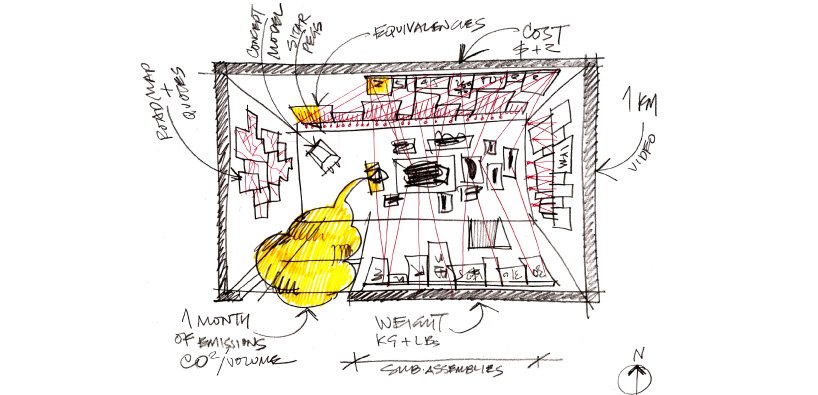 CONCEPT
MODEL
SITAR
PEGS
EQUIVALENCIES
COST
$ + Z
ROADMAP
+
QUOTES
1 KM
VIDEO
WALL
1 MONTH
OF EMISSIONS
CO²/VOLUME
WEIGHT
KG + LBS
SUB·ASSEMBLIES
N